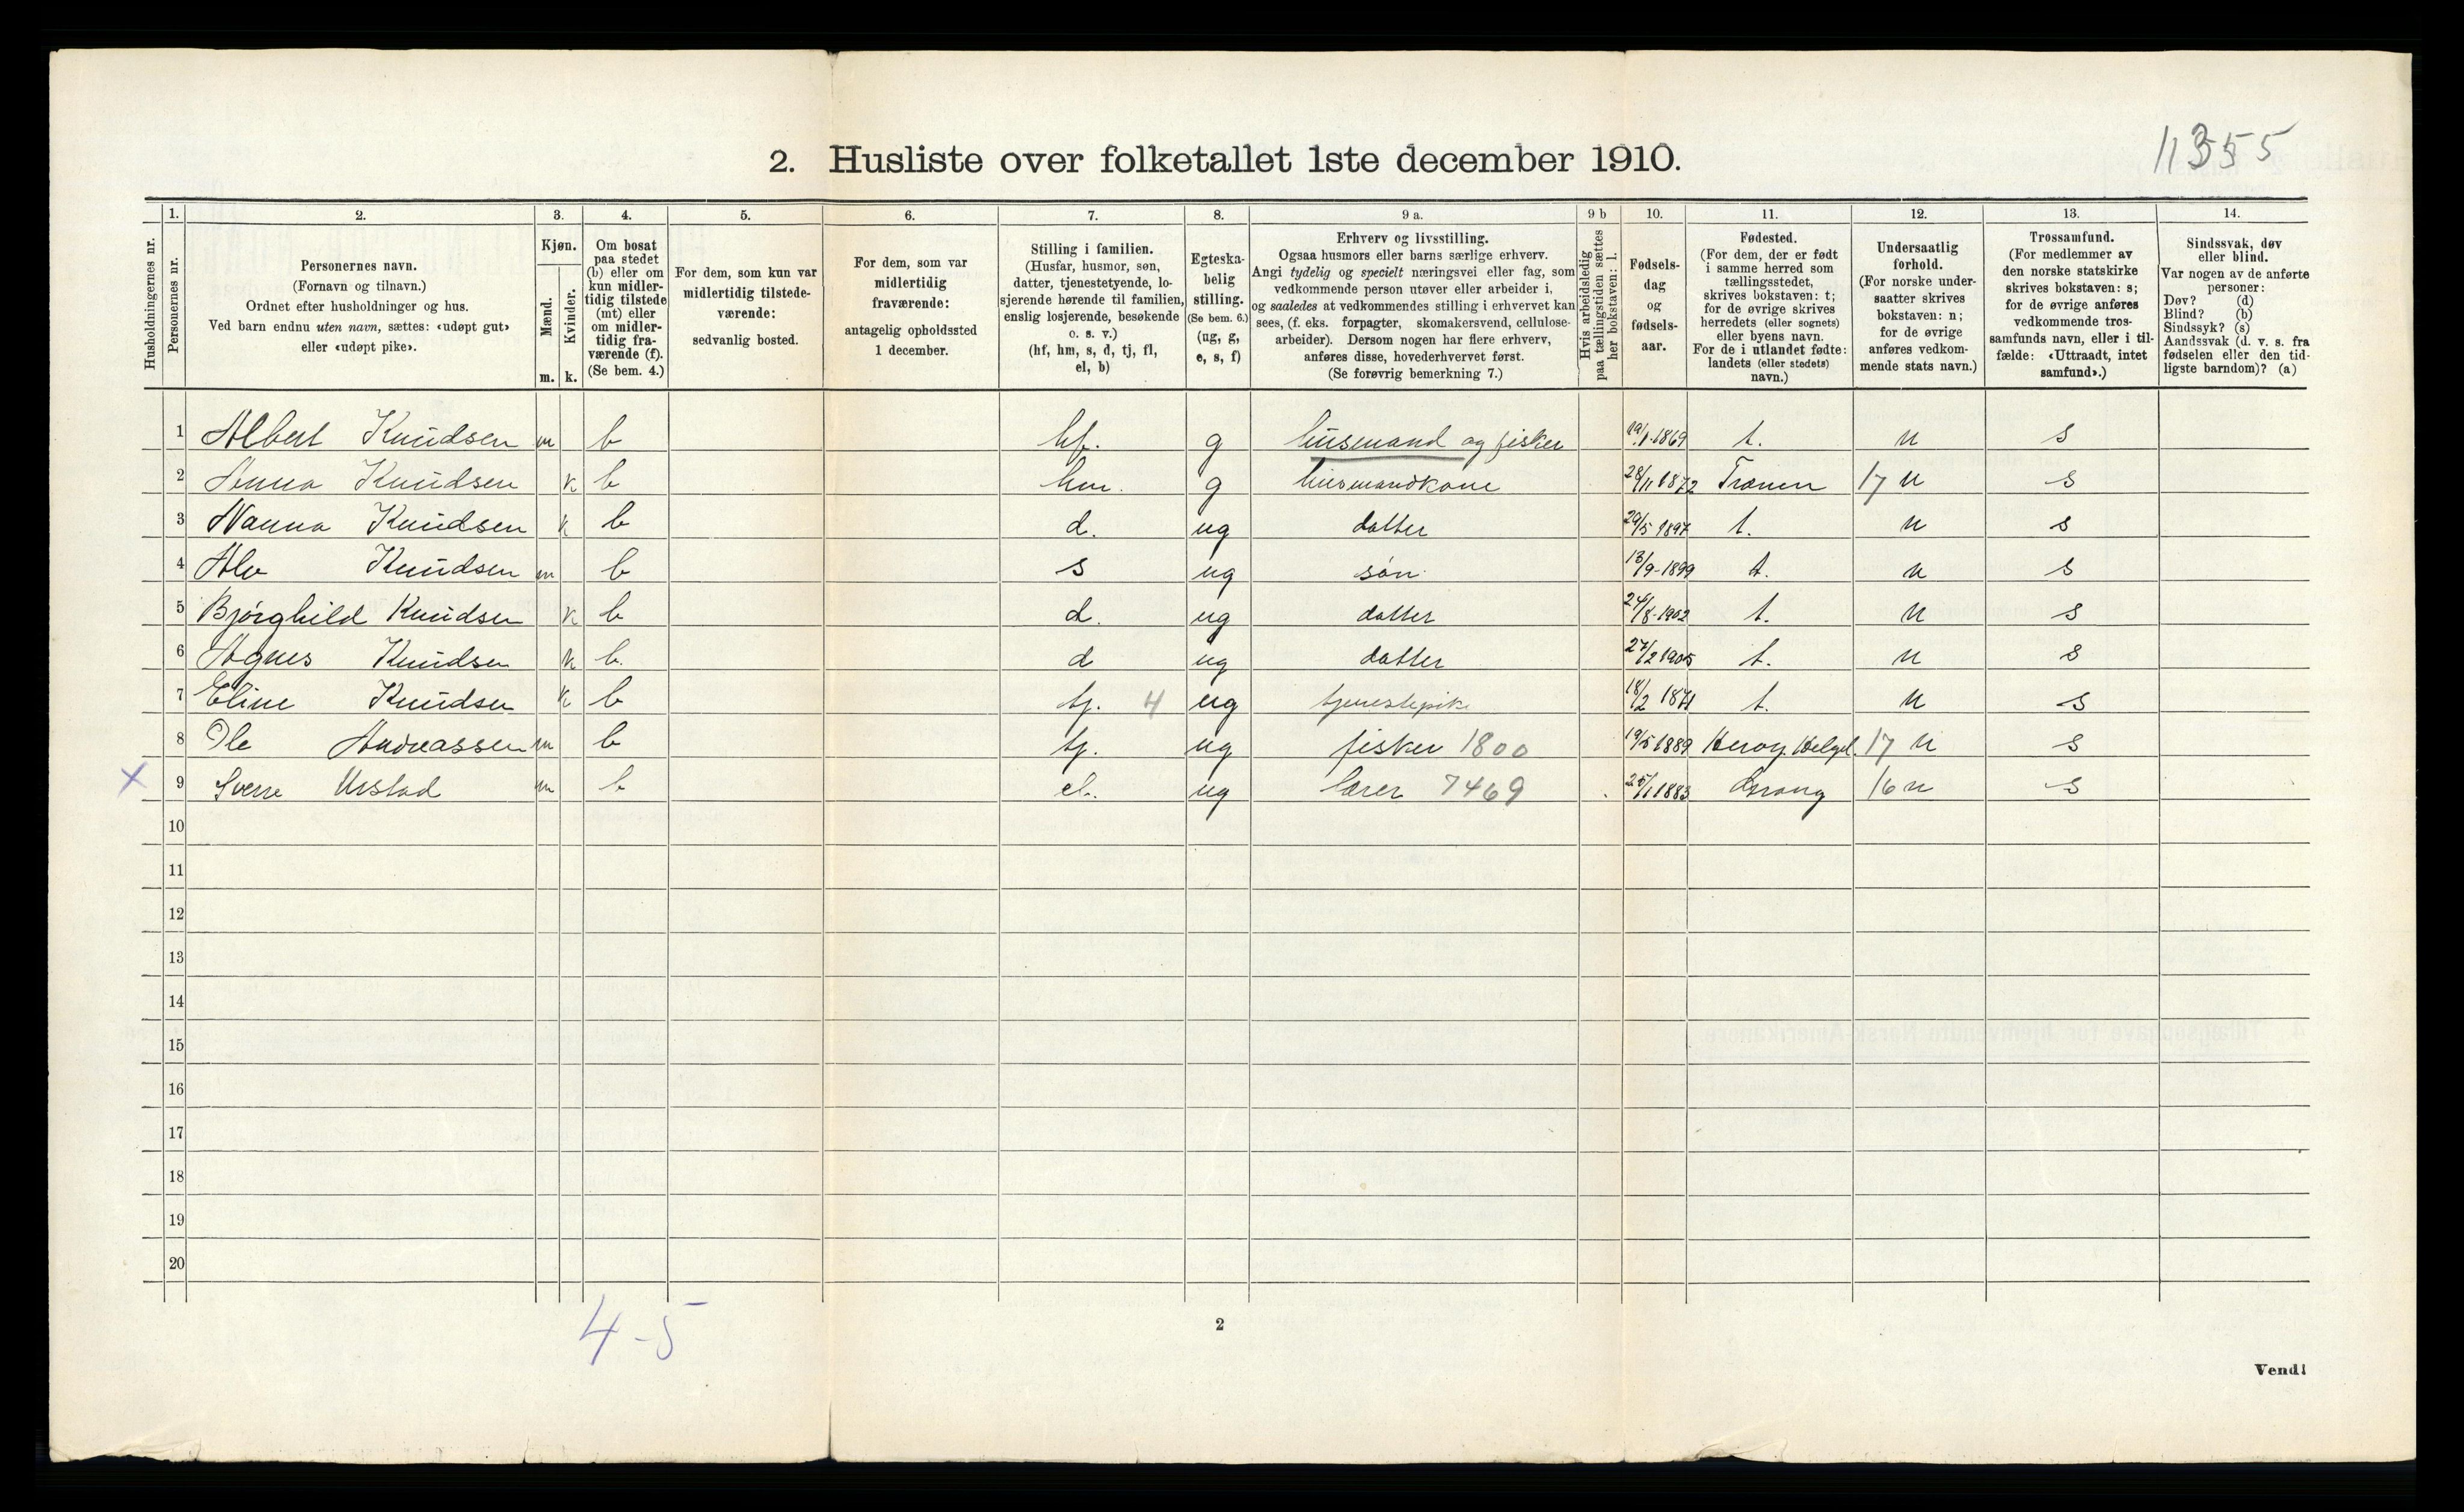 11355
2. Husliste over folketallet 1ste december 1910.
Husholdningernes nr.
1. Personernes nr.
2. Personernes navn. (Fornavn og tilnavn.) Ordnet efter husholdninger og hus. Ved barn endnu uten navn, sættes: «udøpt gut» eller «udøpt pike».
3. Kjøn. Mænd. m. Kvinder. k.
4. Om bosat paa stedet (b) eller om kun midlertidig tilstede (mt) eller om midlertidig fraværende (f). (Se bem. 4.)
5. For dem, som kun var midlertidig tilstedeværende: sedvanlig bosted.
6. For dem, som var midlertidig fraværende: antagelig opholdssted 1 december.
7. Stilling i familien. (Husfar, husmor, søn, datter, tjenestetyende, losjerende hørende til familien, enslig losjerende, besøkende o. s. v.) (hf, hm, s, d, tj, fl, el, b)
8. Egteskabelig stilling. (Se bem. 6.) (ug, g, e, s, f)
9 a. Erhverv og livsstilling. Ogsaa husmors eller barns særlige erhverv. Angi tydelig og specielt næringsvei eller fag, som vedkommende person utøver eller arbeider i, og saaledes at vedkommendes stilling i erhvervet kan sees, (f. eks. forpagter, skomakersvend, cellulosearbeider). Dersom nogen har flere erhverv, anføres disse, hovederhvervet først. (Se forøvrig bemerkning 7.)
9 b Hvis arbeidsledig paa tællingstiden sættes her bokstaven: l.
10. Fødselsdag og fødselsaar.
11. Fødested. (For dem, der er født i samme herred som tællingsstedet, skrives bokstaven: t; for de øvrige skrives herredets (eller sognets) eller byens navn. For de i utlandet fødte: landets (eller stedets) navn.)
12. Undersaatlig forhold. (For norske undersaatter skrives bokstaven: n; for de øvrige anføres vedkommende stats navn.)
13. Trossamfund. (For medlemmer av den norske statskirke skrives bokstaven: s; for de øvrige anføres vedkommende trossamfunds navn, eller i tilfælde: «Uttraadt, intet samfund».)
14. Sindssvak, døv eller blind. Var nogen av de anførte personer: Døv? (d) Blind? (b) Sindssyk? (s) Aandssvak (d. v. s. fra fødselen eller den tidligste barndom)? (a)
1 Albert Knudsen m b hf. g husmand og fisker 19/1-1869 t. n s
2 Anna Knudsen k b hm. g husmandkone 28/11 1872 Trænen 17 n s
3 Nanna Knudsen k b d. ug datter 29/5 1897 t. n s
4 Alv Knudsen m b s ug søn 13/9-1899 t. n s
5 Bjørghild Knudsen k b d. ug datter 24/8-1902 t. n s
6 Agnes Knudsen k b. d ug datter 27/2 1905 t. n s
7 Eline Knudsen k b tj. 4 ug tjenestepike 18/2 1871 t. n s
8 Ole Andreassen m b tj. ug fisker 1800 19/5 1889 Herøy. Helgel. 17 n s
x 9 Sverre Urstad m b el. ug lærer 7469 25/1 1883 16 n s
10
11
12
13
14
15
16
17
18
19
20
4-5
2
Vend!